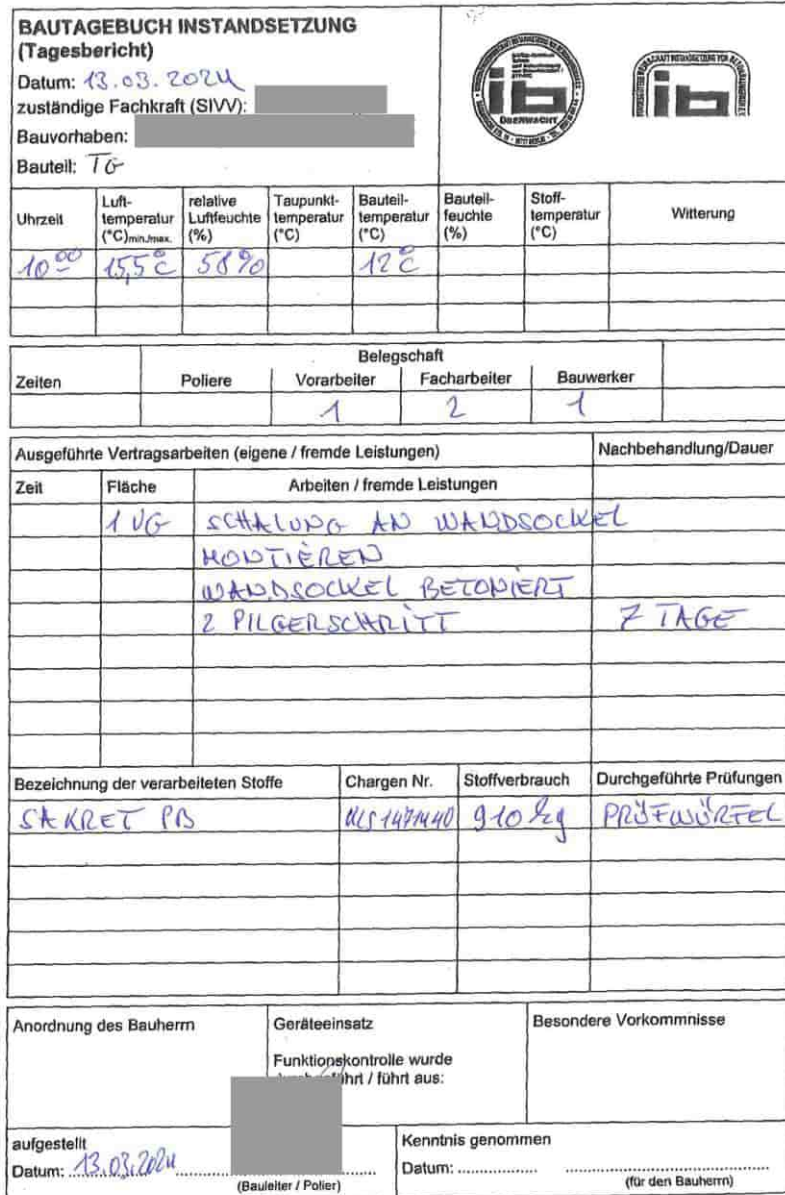 BAUTAGEBUCH INSTANDSETZUNG
(Tagesbericht)
Datum: 13.03.2024
zuständige Fachkraft (SIVV):
Bauvorhaben:
Bauteil: TG
ib
ÜBERWACHT
ib
Uhrzeit Luft-temperatur (°C)min./max. relative Luftfeuchte (%) Taupunkt-temperatur (°C) Bauteil-temperatur (°C) Bauteil-feuchte (%) Stoff-temperatur (°C) Witterung
10 00 15,5°C 58% 12°C
Belegschaft
Zeiten Poliere Vorarbeiter Facharbeiter Bauwerker
1 2 1
Ausgeführte Vertragsarbeiten (eigene / fremde Leistungen) Nachbehandlung/Dauer
Zeit Fläche Arbeiten / fremde Leistungen
1 UG SCHALUNG AN WANDSOCKEL
MONTIEREN
WANDSOCKEL BETONIERT
2 PILGERSCHRITT 7 TAGE
Bezeichnung der verarbeiteten Stoffe Chargen Nr. Stoffverbrauch Durchgeführte Prüfungen
SAKRET PB 910 kg PRÜFWÜRFEL
Anordnung des Bauherrn Geräteeinsatz Besondere Vorkommnisse
Funktionskontrolle wurde
führt / führt aus:
aufgestellt Kenntnis genommen
Datum: 13.03.2024 Datum:
(Bauleiter / Polier) (für den Bauherrn)